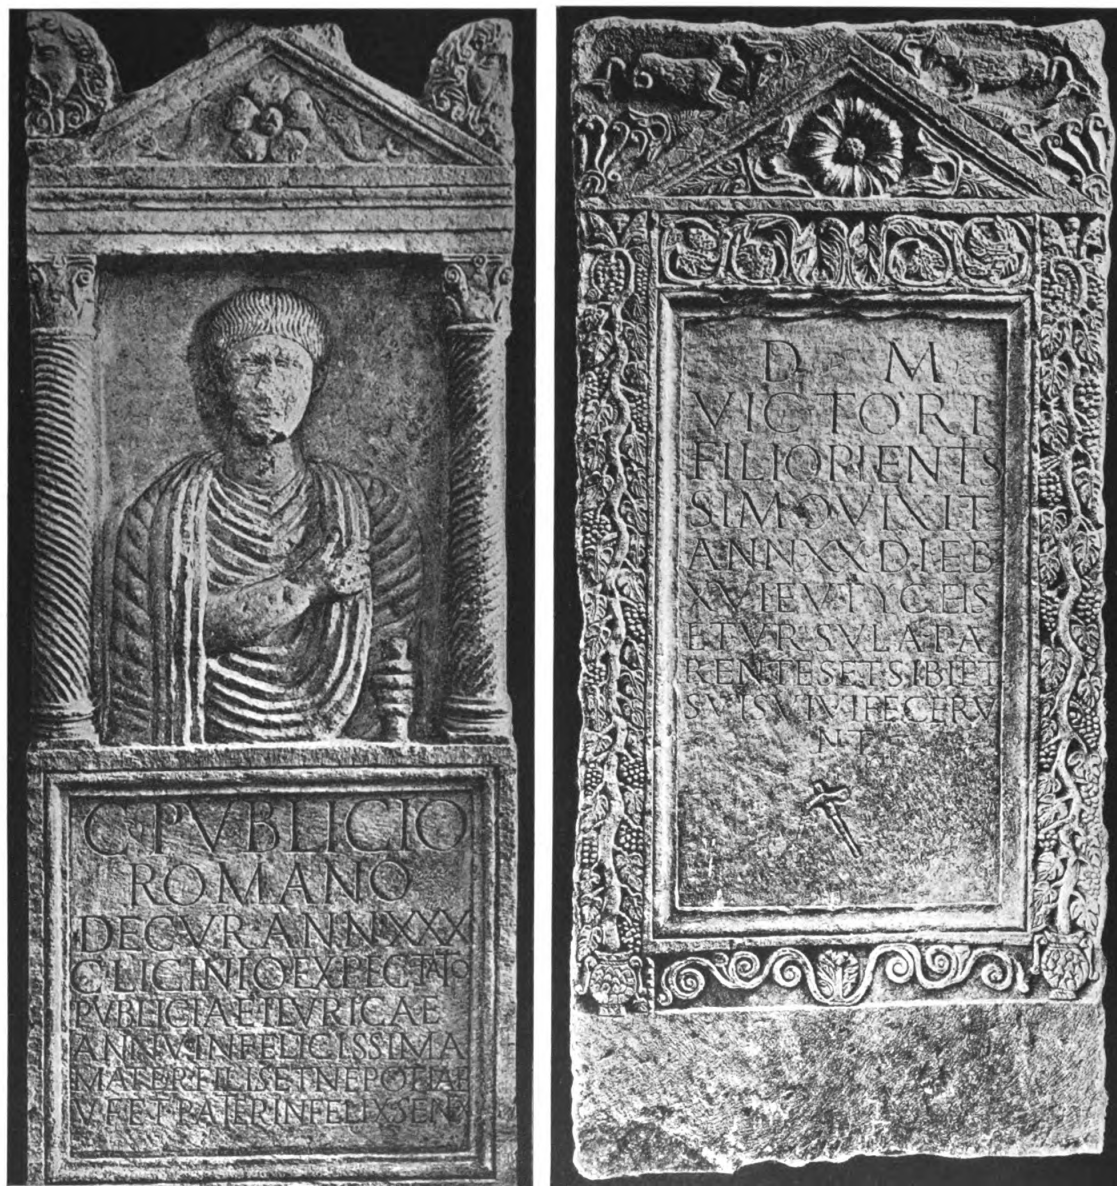 C PVBLICIO
ROMANO
DECVR ANN XXX
C LICINIO EXPECTATO
PVBLICIAE ILVRICAE
ANN V INFELICISSIMA
MATER FILIS ET NEPOTIAE
V F ET PATER INFELIX SENEX
D M
VICTORI
FILIO PIENTS
SIMO VIXIT
ANN XX DIEB
XVI EVTYCHS
ET VRSVLA PA
RENTES ET SIBI ET
SVIS VIVI FECERV
NT